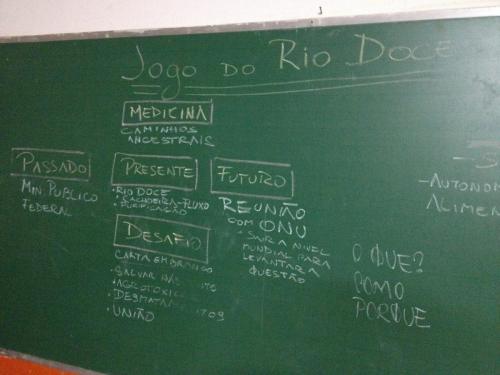 JOGO DO RIO DOCE
MEDICINA
CAMINHOS
ANCESTRAIS
PASSADO
MIN. PUBLICO
FEDERAL
PRESENTE
• RIO DOCE
• CACHOEIRA-FLUXO
• PURIFICAÇÃO
FUTURO
REUNIÃO
COM ONU
• SAIR A NIVEL
MUNDIAL PARA
LEVANTAR A
QUESTÃO
DESAFIO
CARTA EM BRANCO
• SALVAR
• AGROTOXICO
• DESMATAMENTOS
• UNIÃO
O QUE?
COMO
PORQUE
- AUTONO
ALIME